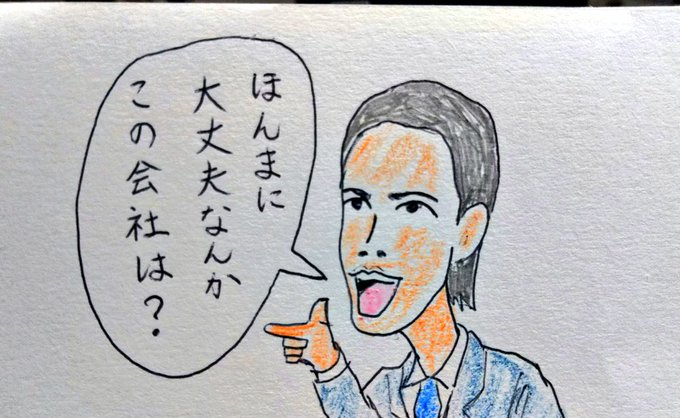 ほんまに
大丈夫なんか
この会社は?